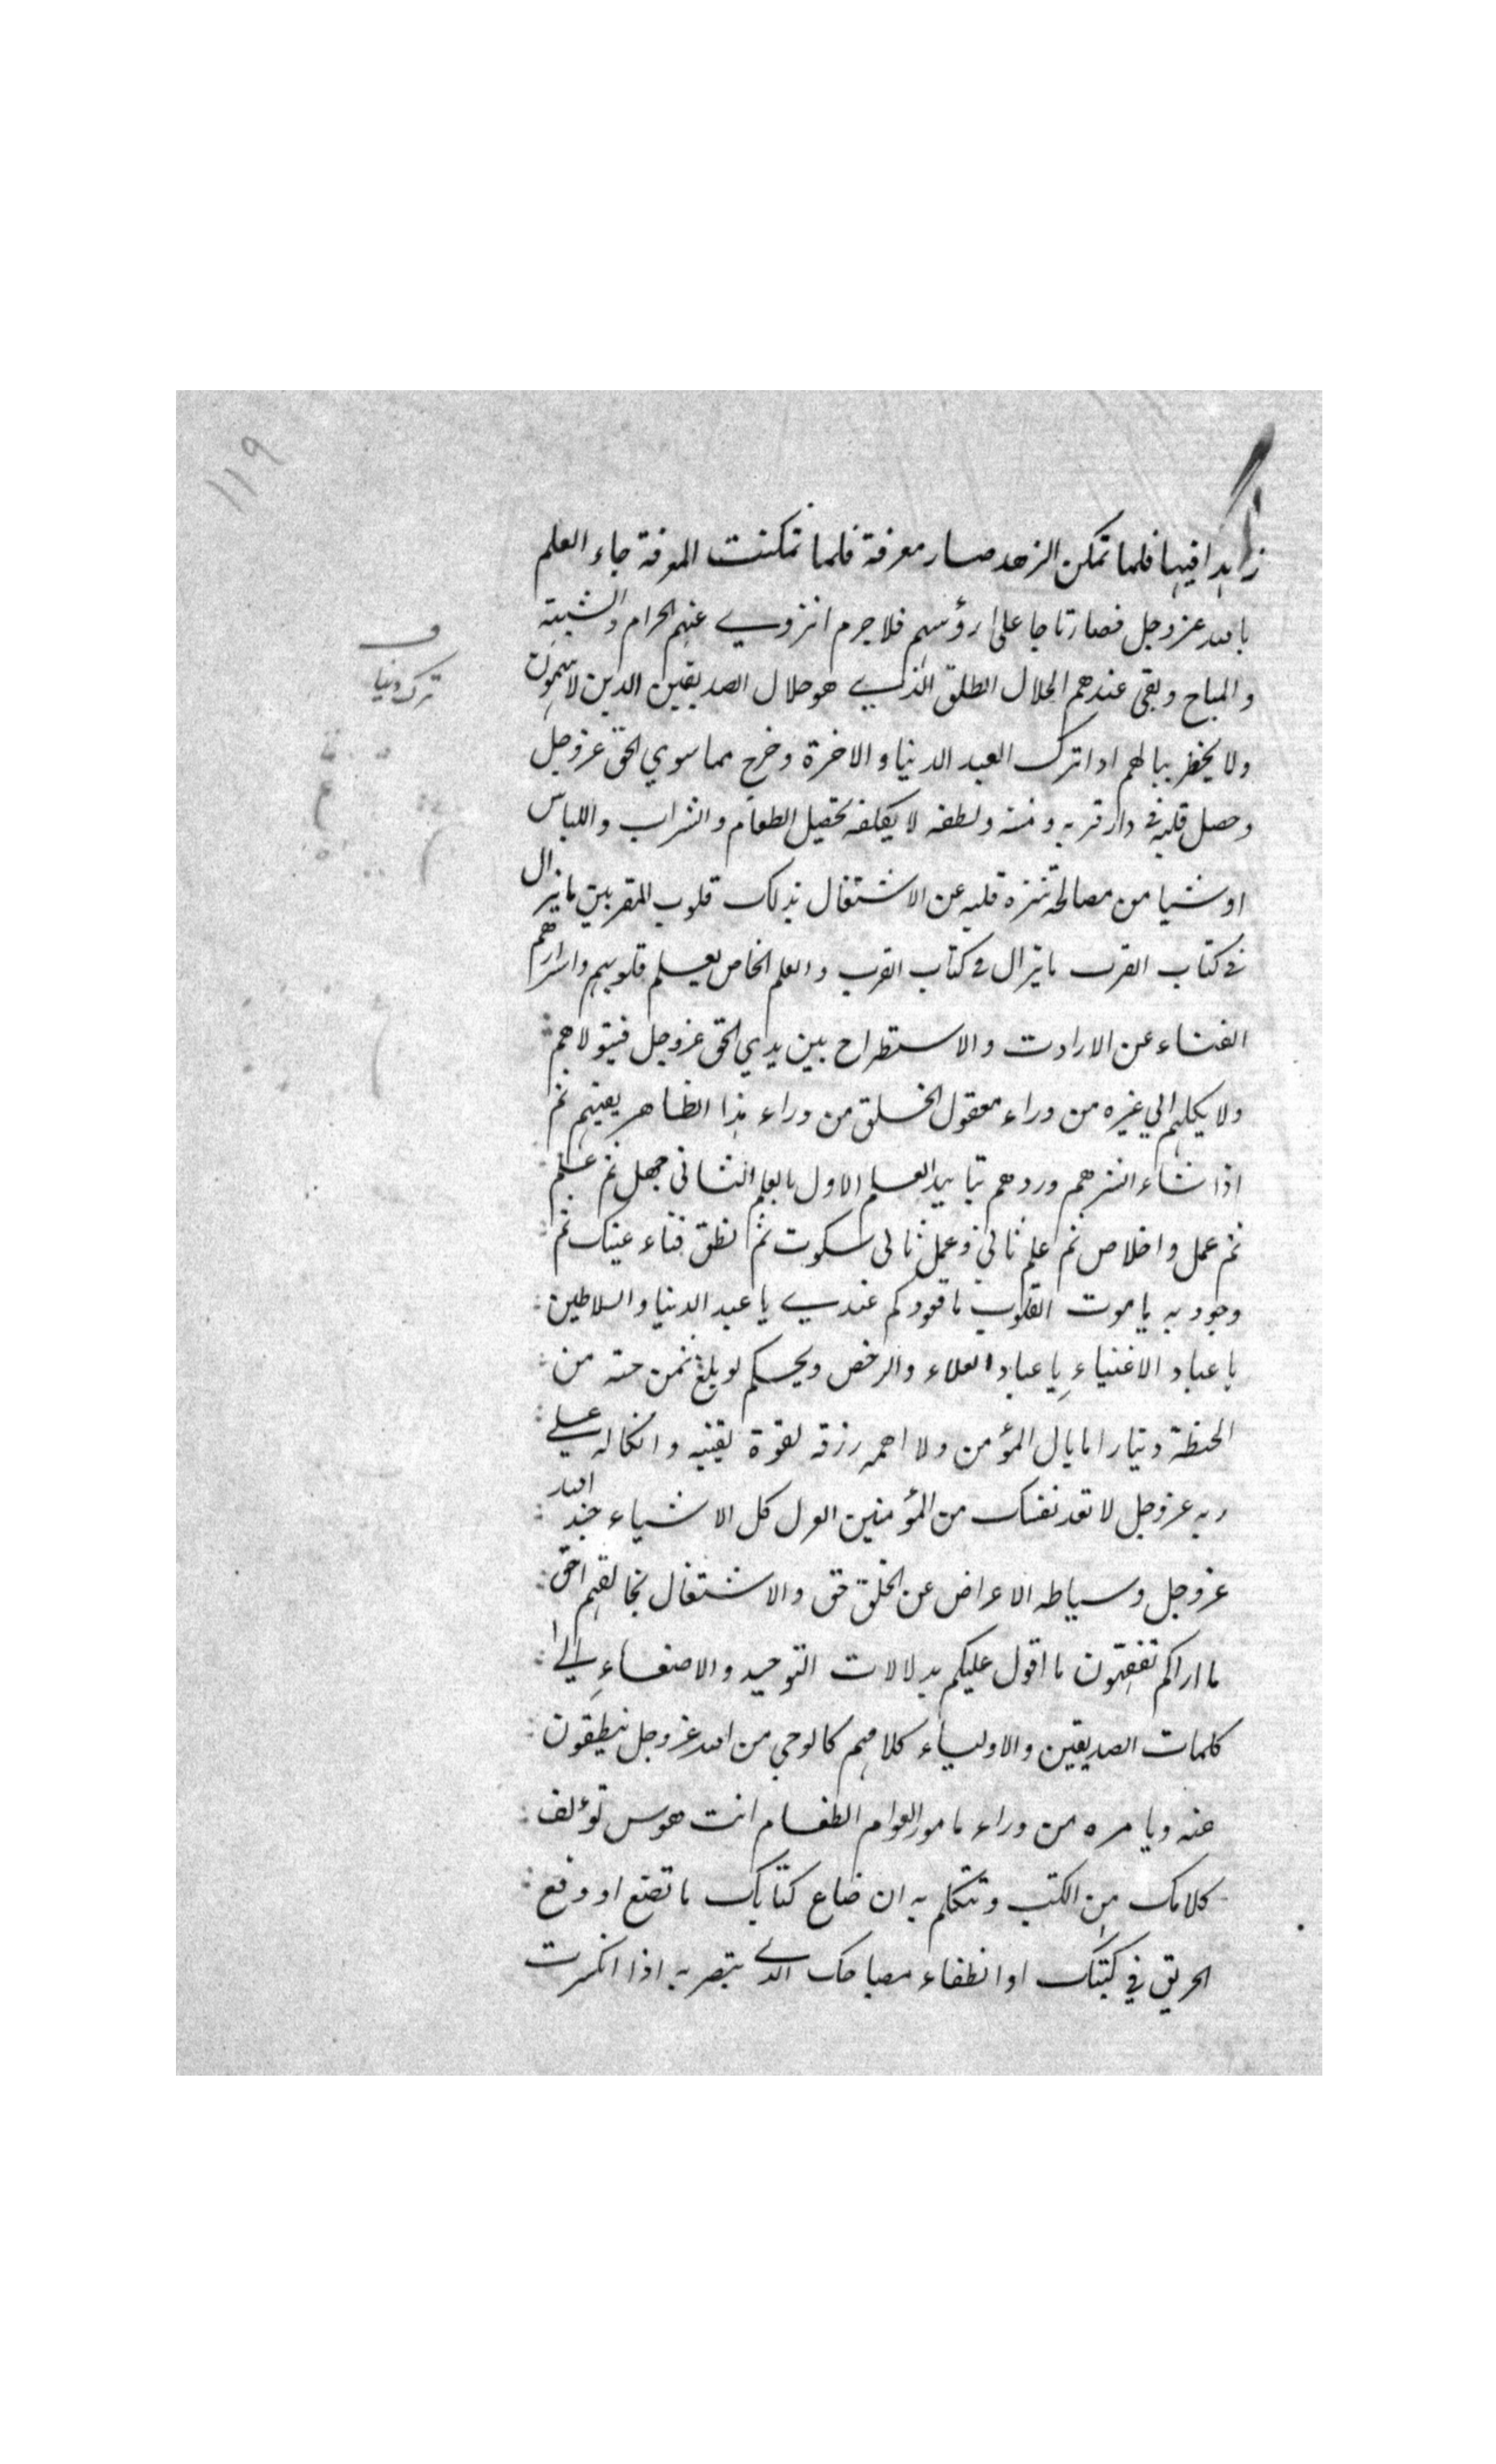 ١١٩
زاهدا فيها فلما تمكن الزهد صار معرفة فلما تمكنت المعرفة جاء العلم
بالله عز وجل فصار تاجا على رؤسهم فلا جرم انزوي عنهم الحرام والشبهة
والمباح وبقى عندهم الحلال الطلق الذي هو حلال الصديقين الذين لا يتهمون
ولا يخطر ببالهم اذا ترك العبد الدنيا والاخرة وخرج مما سوي الحق عز وجل
وحصل قلبه في دار قربه ومنه ولطفه لا يكلفه تحصيل الطعام والشراب واللباس
او شيا من مصالحه تنزه قلبه عن الاشتغال بذلك قلوب المقربين ما يزال
في كتاب القرب ما يزال في كتاب القرب والعلم الخاص يعلم قلوبهم واسرارهم
الفناء عن الارادت والاستطراح بين يدي الحق عز وجل فيتولاهم
ولا يكلهم الي غيره من وراء معقول الخلق من وراء هذا الظاهر يفنيهم ثم
اذا شاء انشرهم وردهم بتاييد العلم الاول بالعلم الثاني جهل ثم علم
ثم عمل واخلاص ثم علم ثاني وعمل ثاني سكوت ثم نطق فناء عينك ثم
وجود به يا موت القلوب ما قعودكم عندي يا عبد الدنيا والسلاطين
يا عباد الاغنياء يا عباد الغلاء والرخص ويحكم لو بلغ ثمن حبه من
الحنطة دينارا ما بال المؤمن ولا اهمه رزقه لقوة يقينه واتكاله علي
ربه عز وجل لا تعد نفسك من المؤمنين اعزل كل الاشياء جند الله
عز وجل وسياطه الاعراض عن الخلق حق والاشتغال بخالقهم احق
ما اراكم تفقهون ما اقول عليكم بدلالات التوحيد والاصغاء الي
كلمات الصديقين والاولياء كلامهم كالوحي من الله عز وجل ينطقون
عنه وبامره من وراء مامور العوام الطغام انت هوس تؤلف
كلامك من الكتب وتتكلم به ان ضاع كتابك ما تصنع او وقع
الحريق في كتبك او انطفاء مصباحك الذي تبصر به اذا انكسرت
ف
ترك دنيا